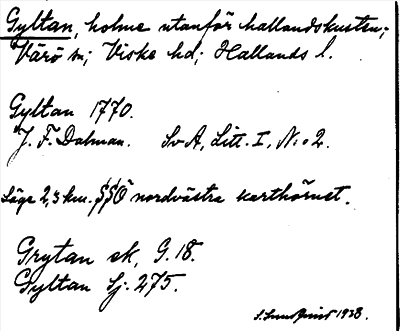 Gyltan, holme utanför hallandskusten;
Värö sn; Viske hd; Hallands l.
Gyltan 1770.
J. F. Dalman. SvA, Litt. I, N:o 2.
Läge 2,3 km. SSÖ nordvästra karthörnet.
Grytan ek, G. 18.
Gyltan Sj. 275.
S. Lundqvist 1928.